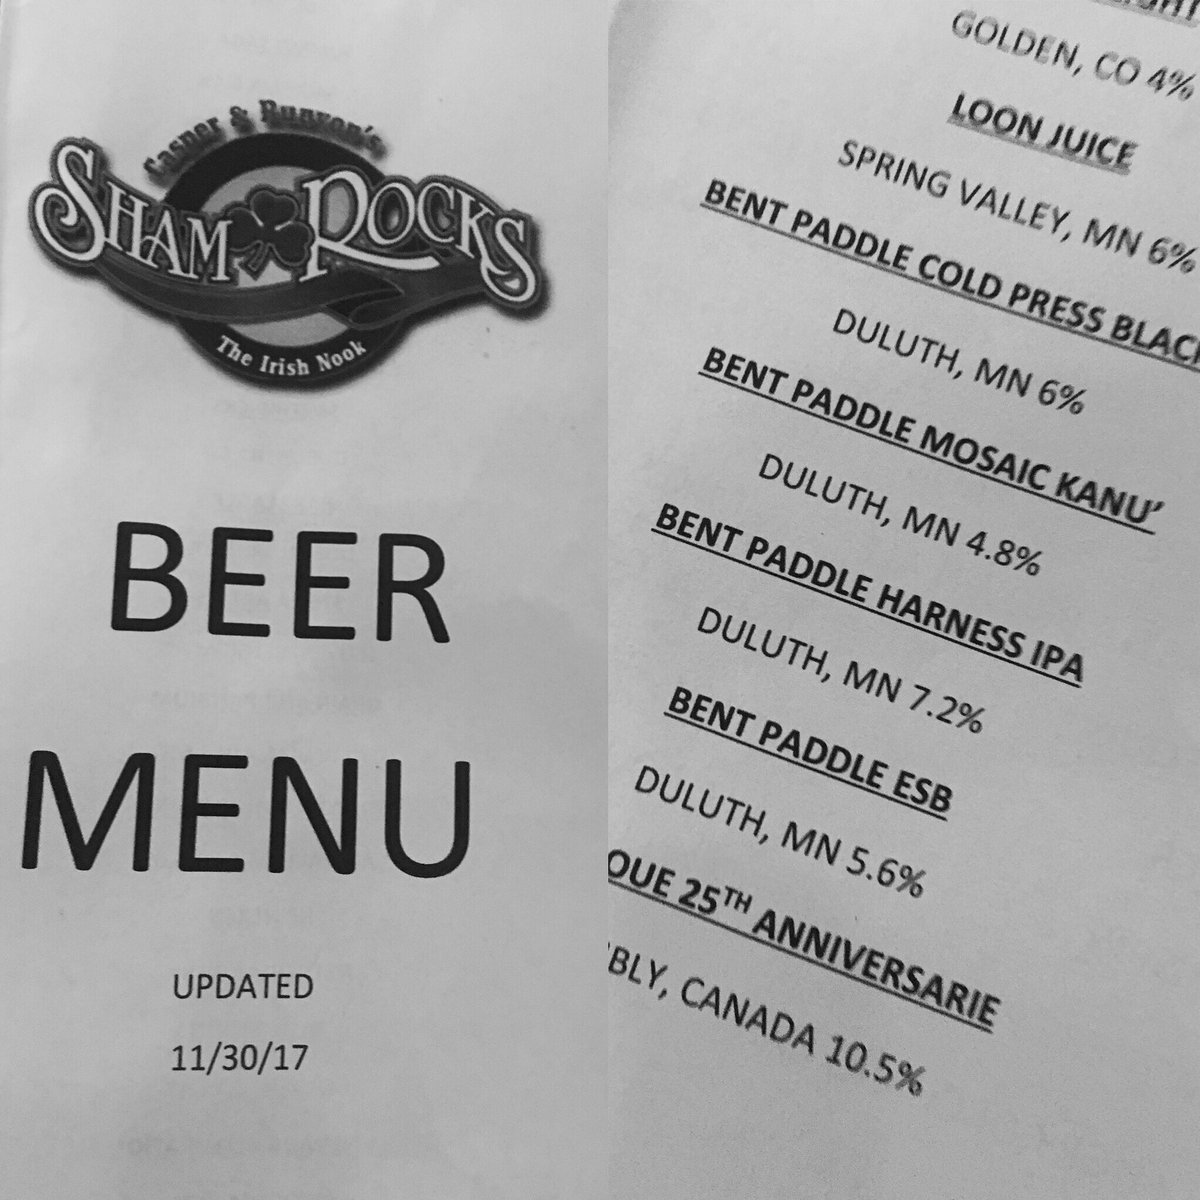 Casper & Runyon's
SHAM ROCKS
The Irish Nook
BEER
MENU
UPDATED
11/30/17
GOLDEN, CO 4%
LOON JUICE
SPRING VALLEY, MN 6%
BENT PADDLE COLD PRESS BLACK
DULUTH, MN 6%
BENT PADDLE MOSAIC KANU'
DULUTH, MN 4.8%
BENT PADDLE HARNESS IPA
DULUTH, MN 7.2%
BENT PADDLE ESB
DULUTH, MN 5.6%
OUE 25TH ANNIVERSARIE
BLY, CANADA 10.5%